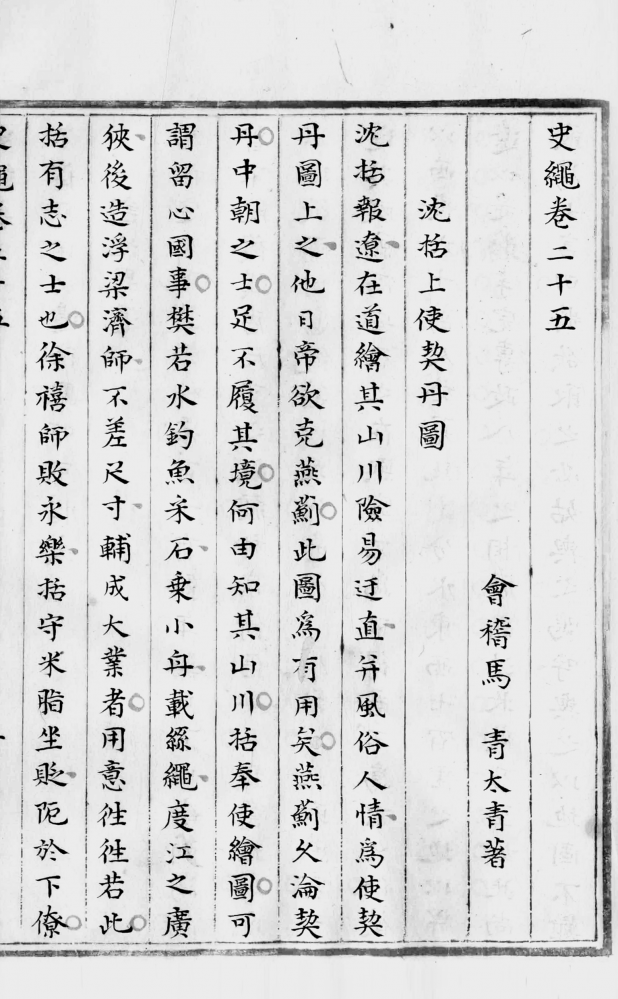 史繩卷二十五
會稽馬 青太青著
沈括上使契丹圖
沈括報遼在道繪其山川險易迂直并風俗人情為使契
丹圖上之他日帝欲克燕薊此圖為有用矣燕薊久淪契
丹中朝之士足不履其境何由知其山川括奉使繪圖可
謂留心國事樊若水釣魚采石乗小舟載絲繩度江之廣
狹後造浮梁濟師不差尺寸輔成大業者用意徃徃若此
括有志之士也徐禧師敗永樂括守米脂坐貶阨於下僚
史繩卷二十五